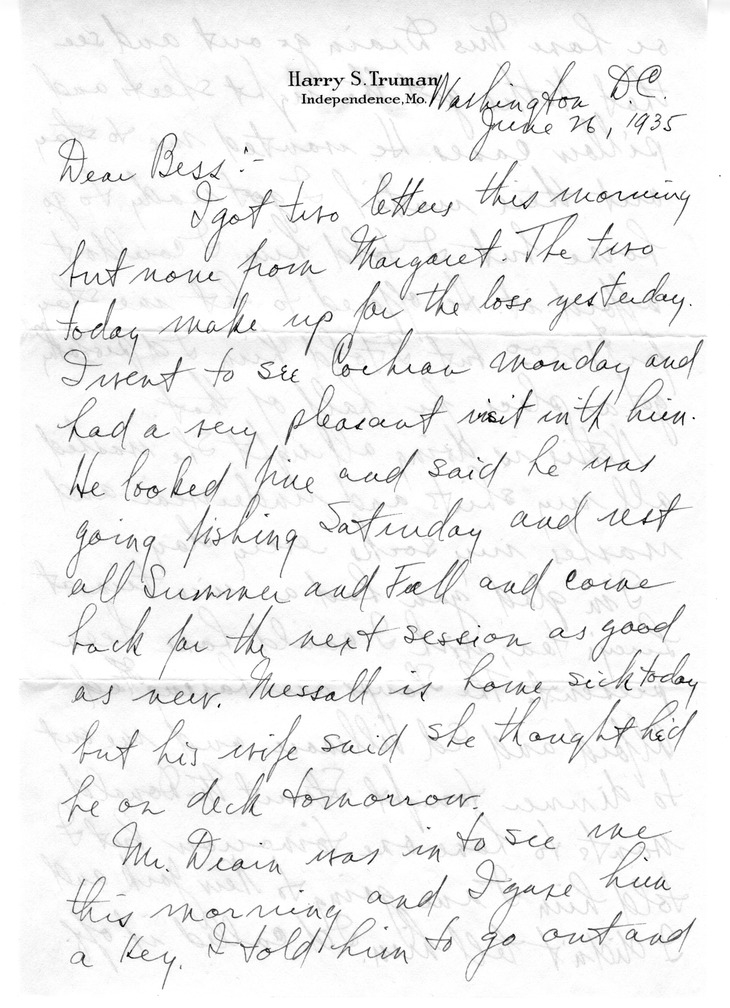 Harry S. Truman
Independence, Mo.
Washington D.C.
June 26, 1935
Dear Bess:-
I got two letters this morning
but none from Margaret. The two
today make up for the loss yesterday.
I went to see Cochran Monday and
had a very pleasant visit with him.
He looked fine and said he was
going fishing Saturday and rest
all Summer and Fall and come
back for the next session as good
as new. Messall is home sick today
but his wife said she thought he'd
be on deck tomorrow.
Mr. Drain was in to see me
this morning and I gave him
a key. I told him to go out and